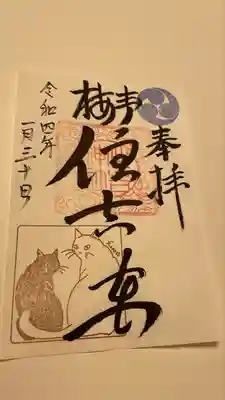 奉拝
梅井
住吉宮
令和四年
一月三十日